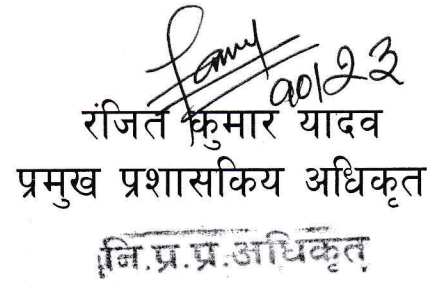 90/23
रंजित कुमार यादव
प्रमुख प्रशासकिय अधिकृत
नि.प्र.प्र.अधिकृत